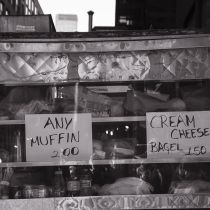 ANY
MUFFIN
2.00
CREAM
CHEESE
BAGEL 1.50